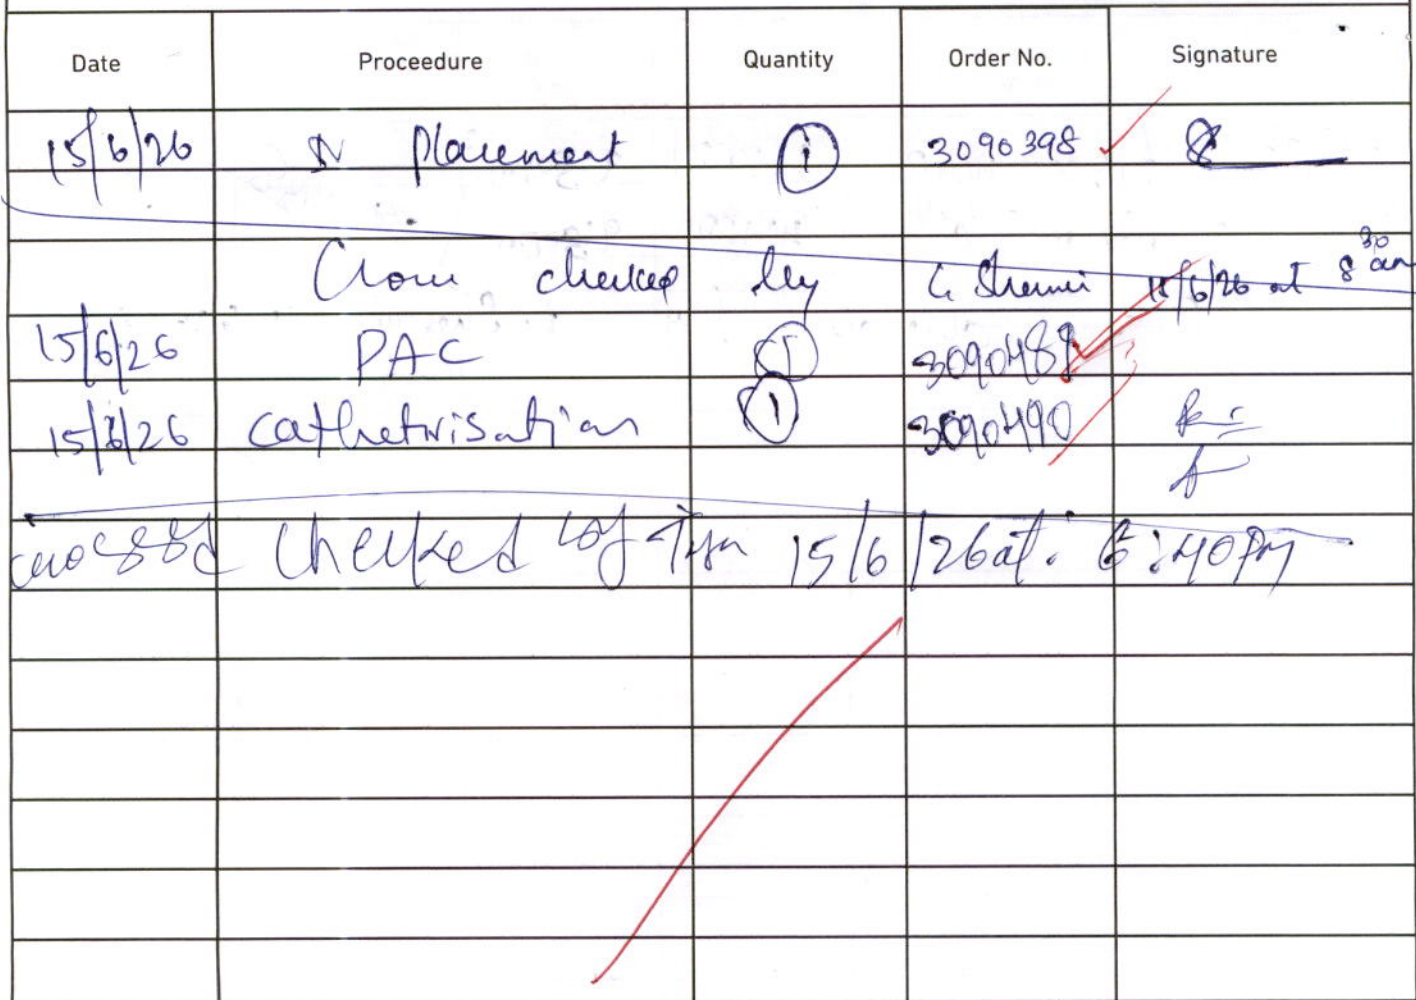 Date Proceedure Quantity Order No. Signature
15/6/26 IV Placement 1 3090398
Cross checked by 15/6/26 at 8 30 am
15/6/26 PAC 1 3090489
15/6/26 cathetrisation 1 3090490
crossed checked by 15/6/26 at. 6:40PM